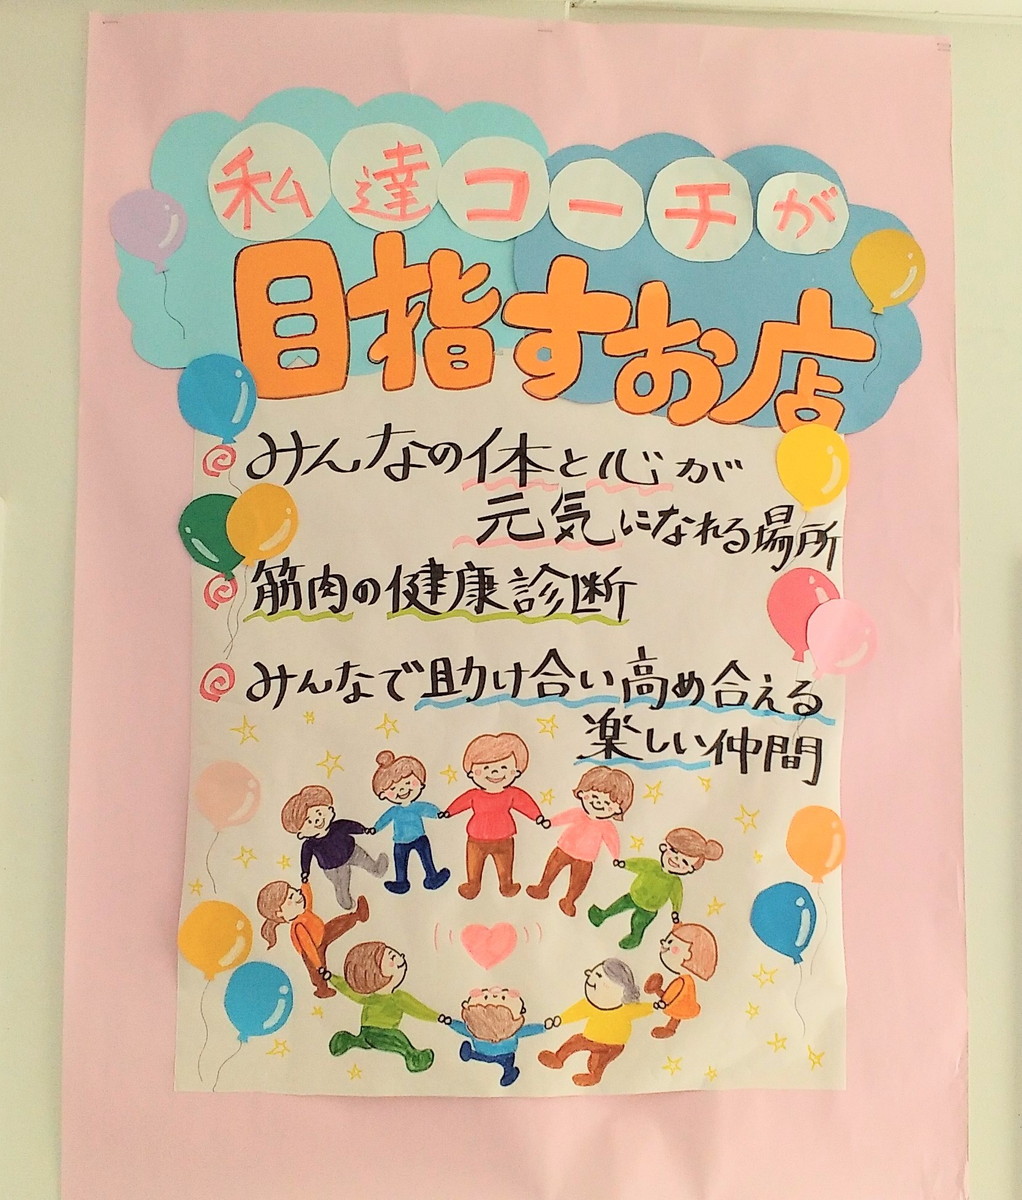 私達コーチが
目指すお店
みんなの体と心が
元気になれる場所
筋肉の健康診断
みんなで助け合い高め合える
楽しい仲間